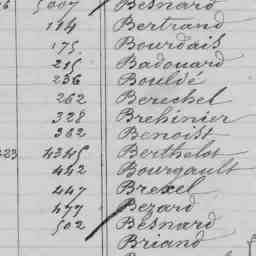 5007 Besnard
114 Bertrand
175 Bourdais
215 Badouard
256 Bouldé
262 Berechel
328 Brehinier
362 Benoist
323 4345 Berthelot
442 Bourgault
447 Brexel
477 Bezard
502 Besnard
Briand